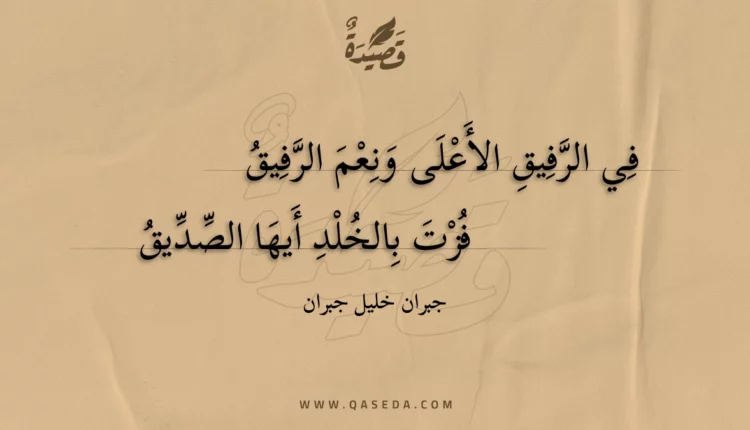 قَصِيدَةٌ
فِي الرَّفِيقِ الأَعْلَى وَنِعْمَ الرَّفِيقُ
فُزْتَ بِالخُلْدِ أَيهَا الصِّدِّيقُ
جبران خليل جبران
WWW.QASEDA.COM